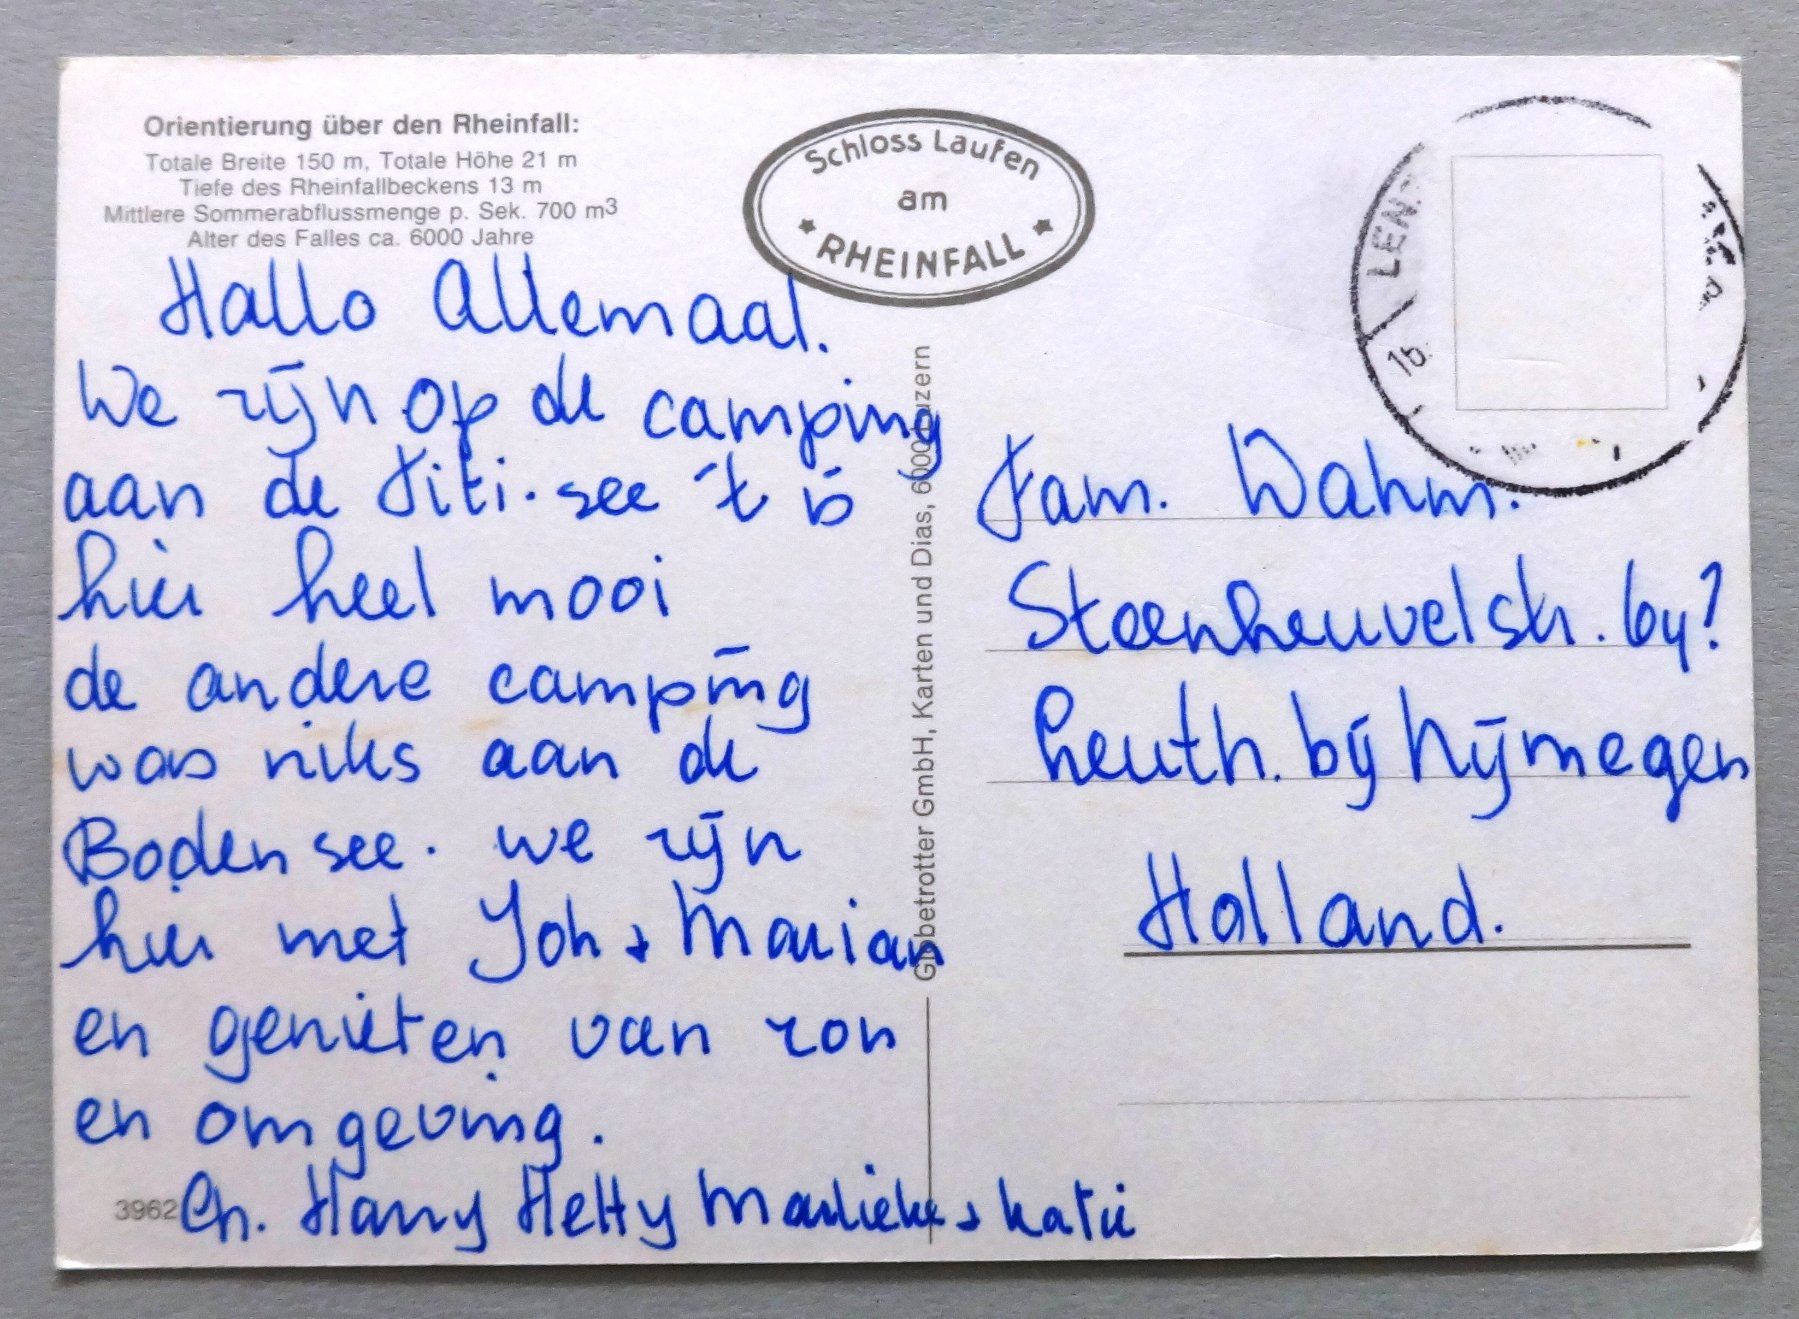 Orientierung über den Rheinfall:
Totale Breite 150 m, Totale Höhe 21 m
Tiefe des Rheinfallbeckens 13 m
Mittlere Sommerabflussmenge p. Sek. 700 m³
Alter des Falles ca. 6000 Jahre
Schloss Laufen
am
RHEINFALL
Hallo Allemaal.
We zijn op de camping
aan de Titi-see 't is
hier heel mooi
de andere camping
was niks aan de
Bodensee. we zijn
hier met Joh + Marian
en genieten van zon
en omgeving.
Gr. Harry Hetty Marlieke + Katie
3962
Globetrotter GmbH, Karten und Dias, 6000 Luzern
LEN
16.
Fam. Dahm.
Steenheuvelstr. 64?
Leuth. bij Nijmegen
Holland.